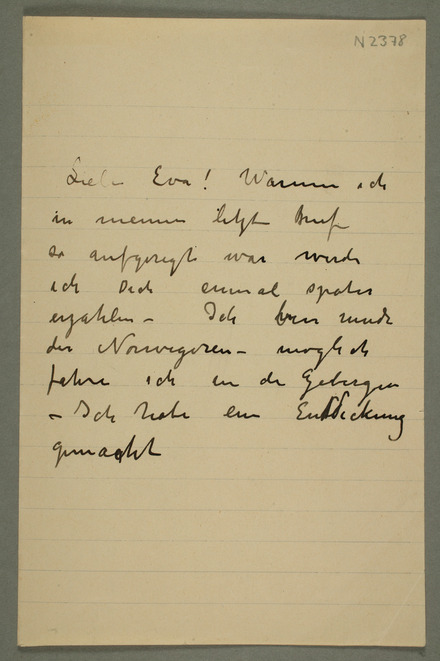 N 2378
Liebe Eva! Warum ich
in meinem letzt Brief
so aufgeregt war werde
ich Dich einmal später
erzahlen – Ich bin müde
der Norwegeren – möglich
fahre ich in die Gebergen
– Ich habe ein Entdickung
gemacht